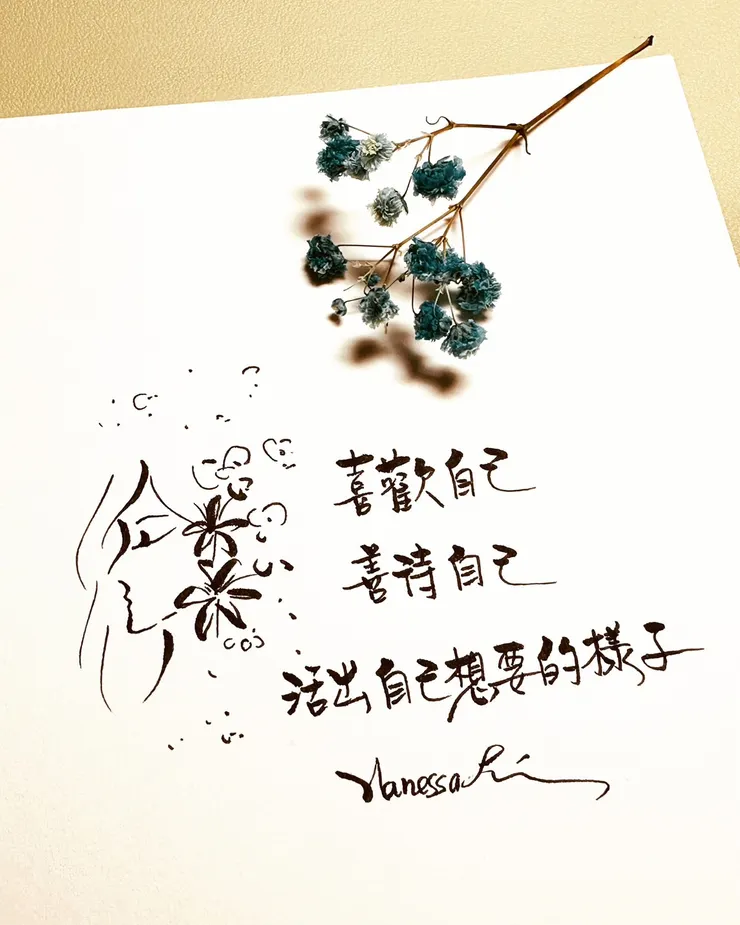 喜歡自己
善待自己
活出自己想要的樣子
Vanessa Lin